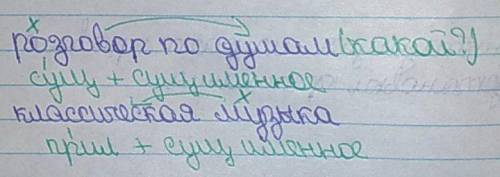 х
розговор по думам (какой?)
сущ + сущ именное
х
классическая музыка
прил + сущ именное